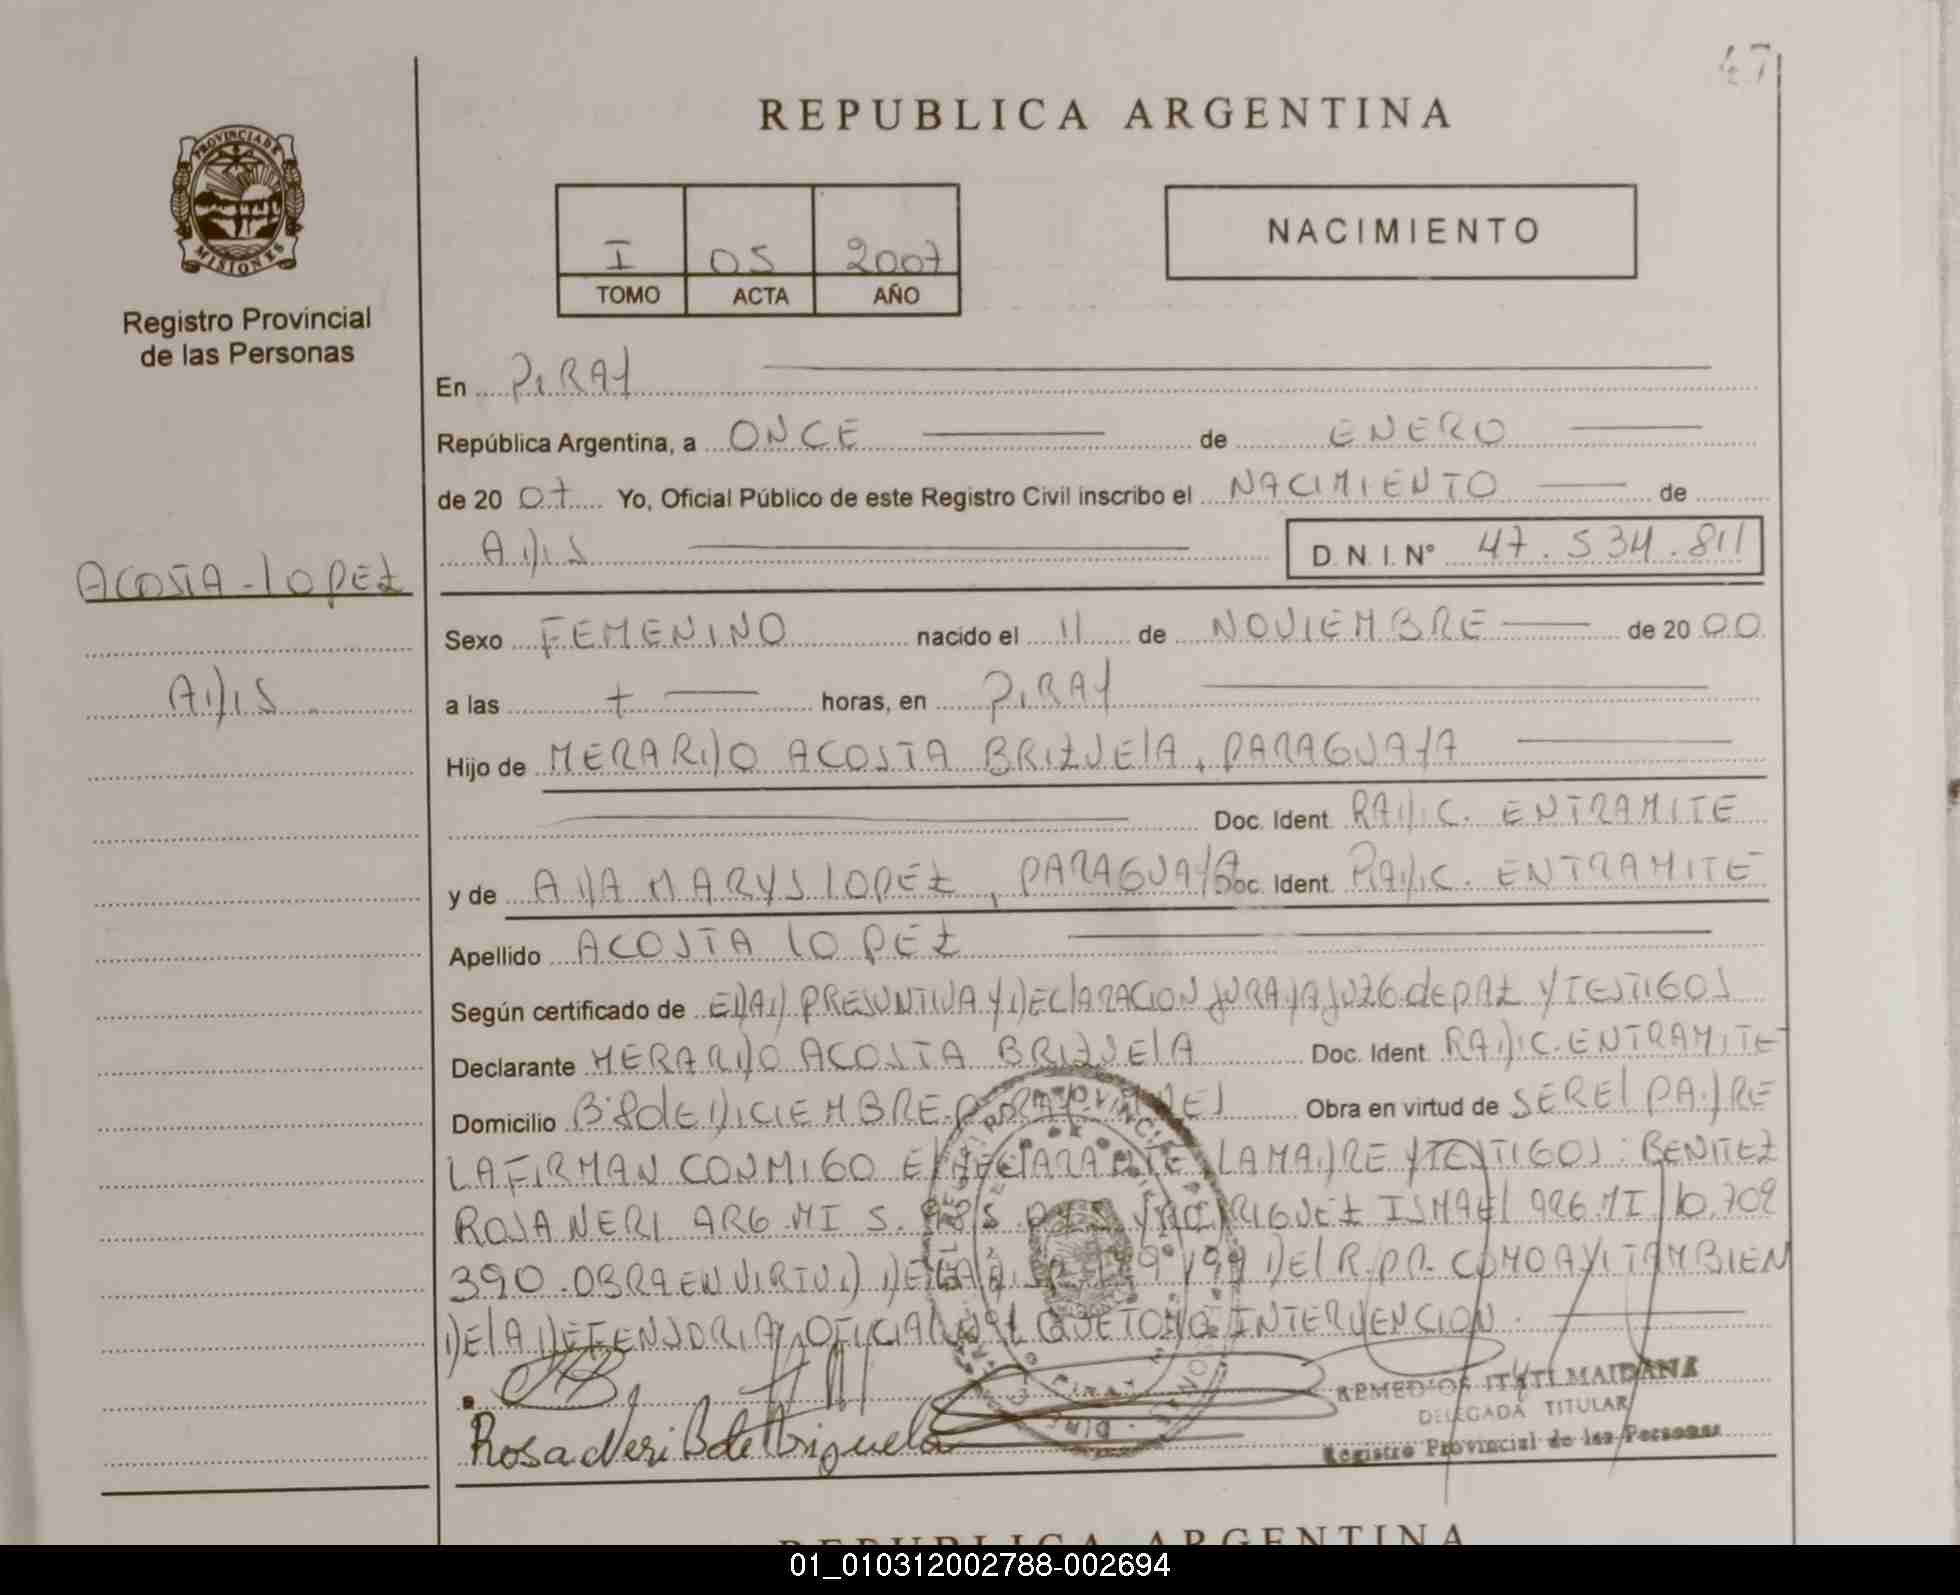 47
REPUBLICA ARGENTINA
PROVINCIA DE
MISIONES
Registro Provincial
de las Personas
I 05 2007
TOMO ACTA AÑO
NACIMIENTO
En PIRAY
República Argentina, a ONCE de ENERO
de 20 07 Yo, Oficial Público de este Registro Civil inscribo el NACIMIENTO de
ADIS D.N.I. N° 47.534.811
ACOSTA-LOPEZ
ADIS
Sexo FEMENINO nacido el 11 de NOVIEMBRE de 20 00
a las 7 horas, en PIRAY
Hijo de MERARDO ACOSTA BRIZUELA, PARAGUAYA
Doc. Ident RADIC. EN TRAMITE
y de ADA MARYS LOPEZ, PARAGUAYA Doc. Ident RADIC. EN TRAMITE
Apellido ACOSTA LOPEZ
Según certificado de EDAD PRESUNTIVA Y DECLARACION JURADA JUZG de PAZ Y TESTIGOS
Declarante MERARDO ACOSTA BRIZUELA Doc. Ident RADIC. EN TRAMITE
Domicilio B° 8 de DICIEMBRE. Obra en virtud de SER EL PADRE
LA FIRMAN CONMIGO EL DECLARANTE LA MADRE Y TESTIGOS: BENITEZ
ROSA NERI ARG. MI 5. RODRIGUEZ ISMAEL ARG. MI 10.702
390. OBRA EN VIRTUD DE LA DEL R.P.P. COMO ASI TAMBIEN
DE LA DEFENSORIA OFICIAL QUE TOMO INTERVENCION.
Rosa Neri B de
REMEDIOS ITATI MAIDANA
DELEGADA TITULAR
Registro Provincial de las Personas
REPUBLICA ARGENTINA
01_010312002788-002694